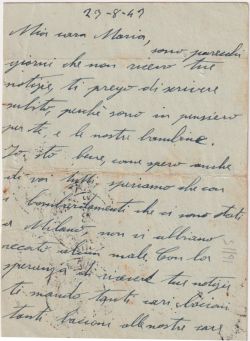 29-8-43
Mia cara Maria,
sono parecchi
giorni che non ricevo tue
notizie, ti prego di scrivere
subito, perché sono in pensiero
per te, e le nostre bambine.
Io sto bene, come spero anche
di voi tutti, speriamo che con
i bombardamenti che ci sono stati
a Milano non vi abbiano
recato alcun male. Con la
speranza di ricevere tue notizie
ti mando tanti cari bacioni
tanti bacioni alle nostre care